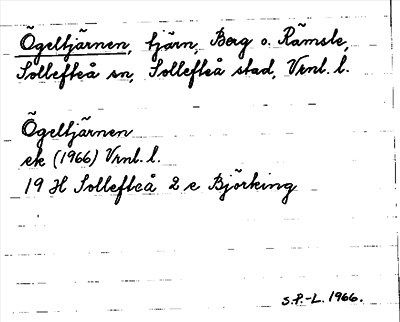 Ögeltjärnen, tjärn, Berg o. Rämsle,
Sollefteå sn, Sollefteå stad, Vrnl. l.
Ögeltjärnen
ek (1966) Vrnl. l.
19 H Sollefteå 2 e Björking
S.P.-L. 1966.